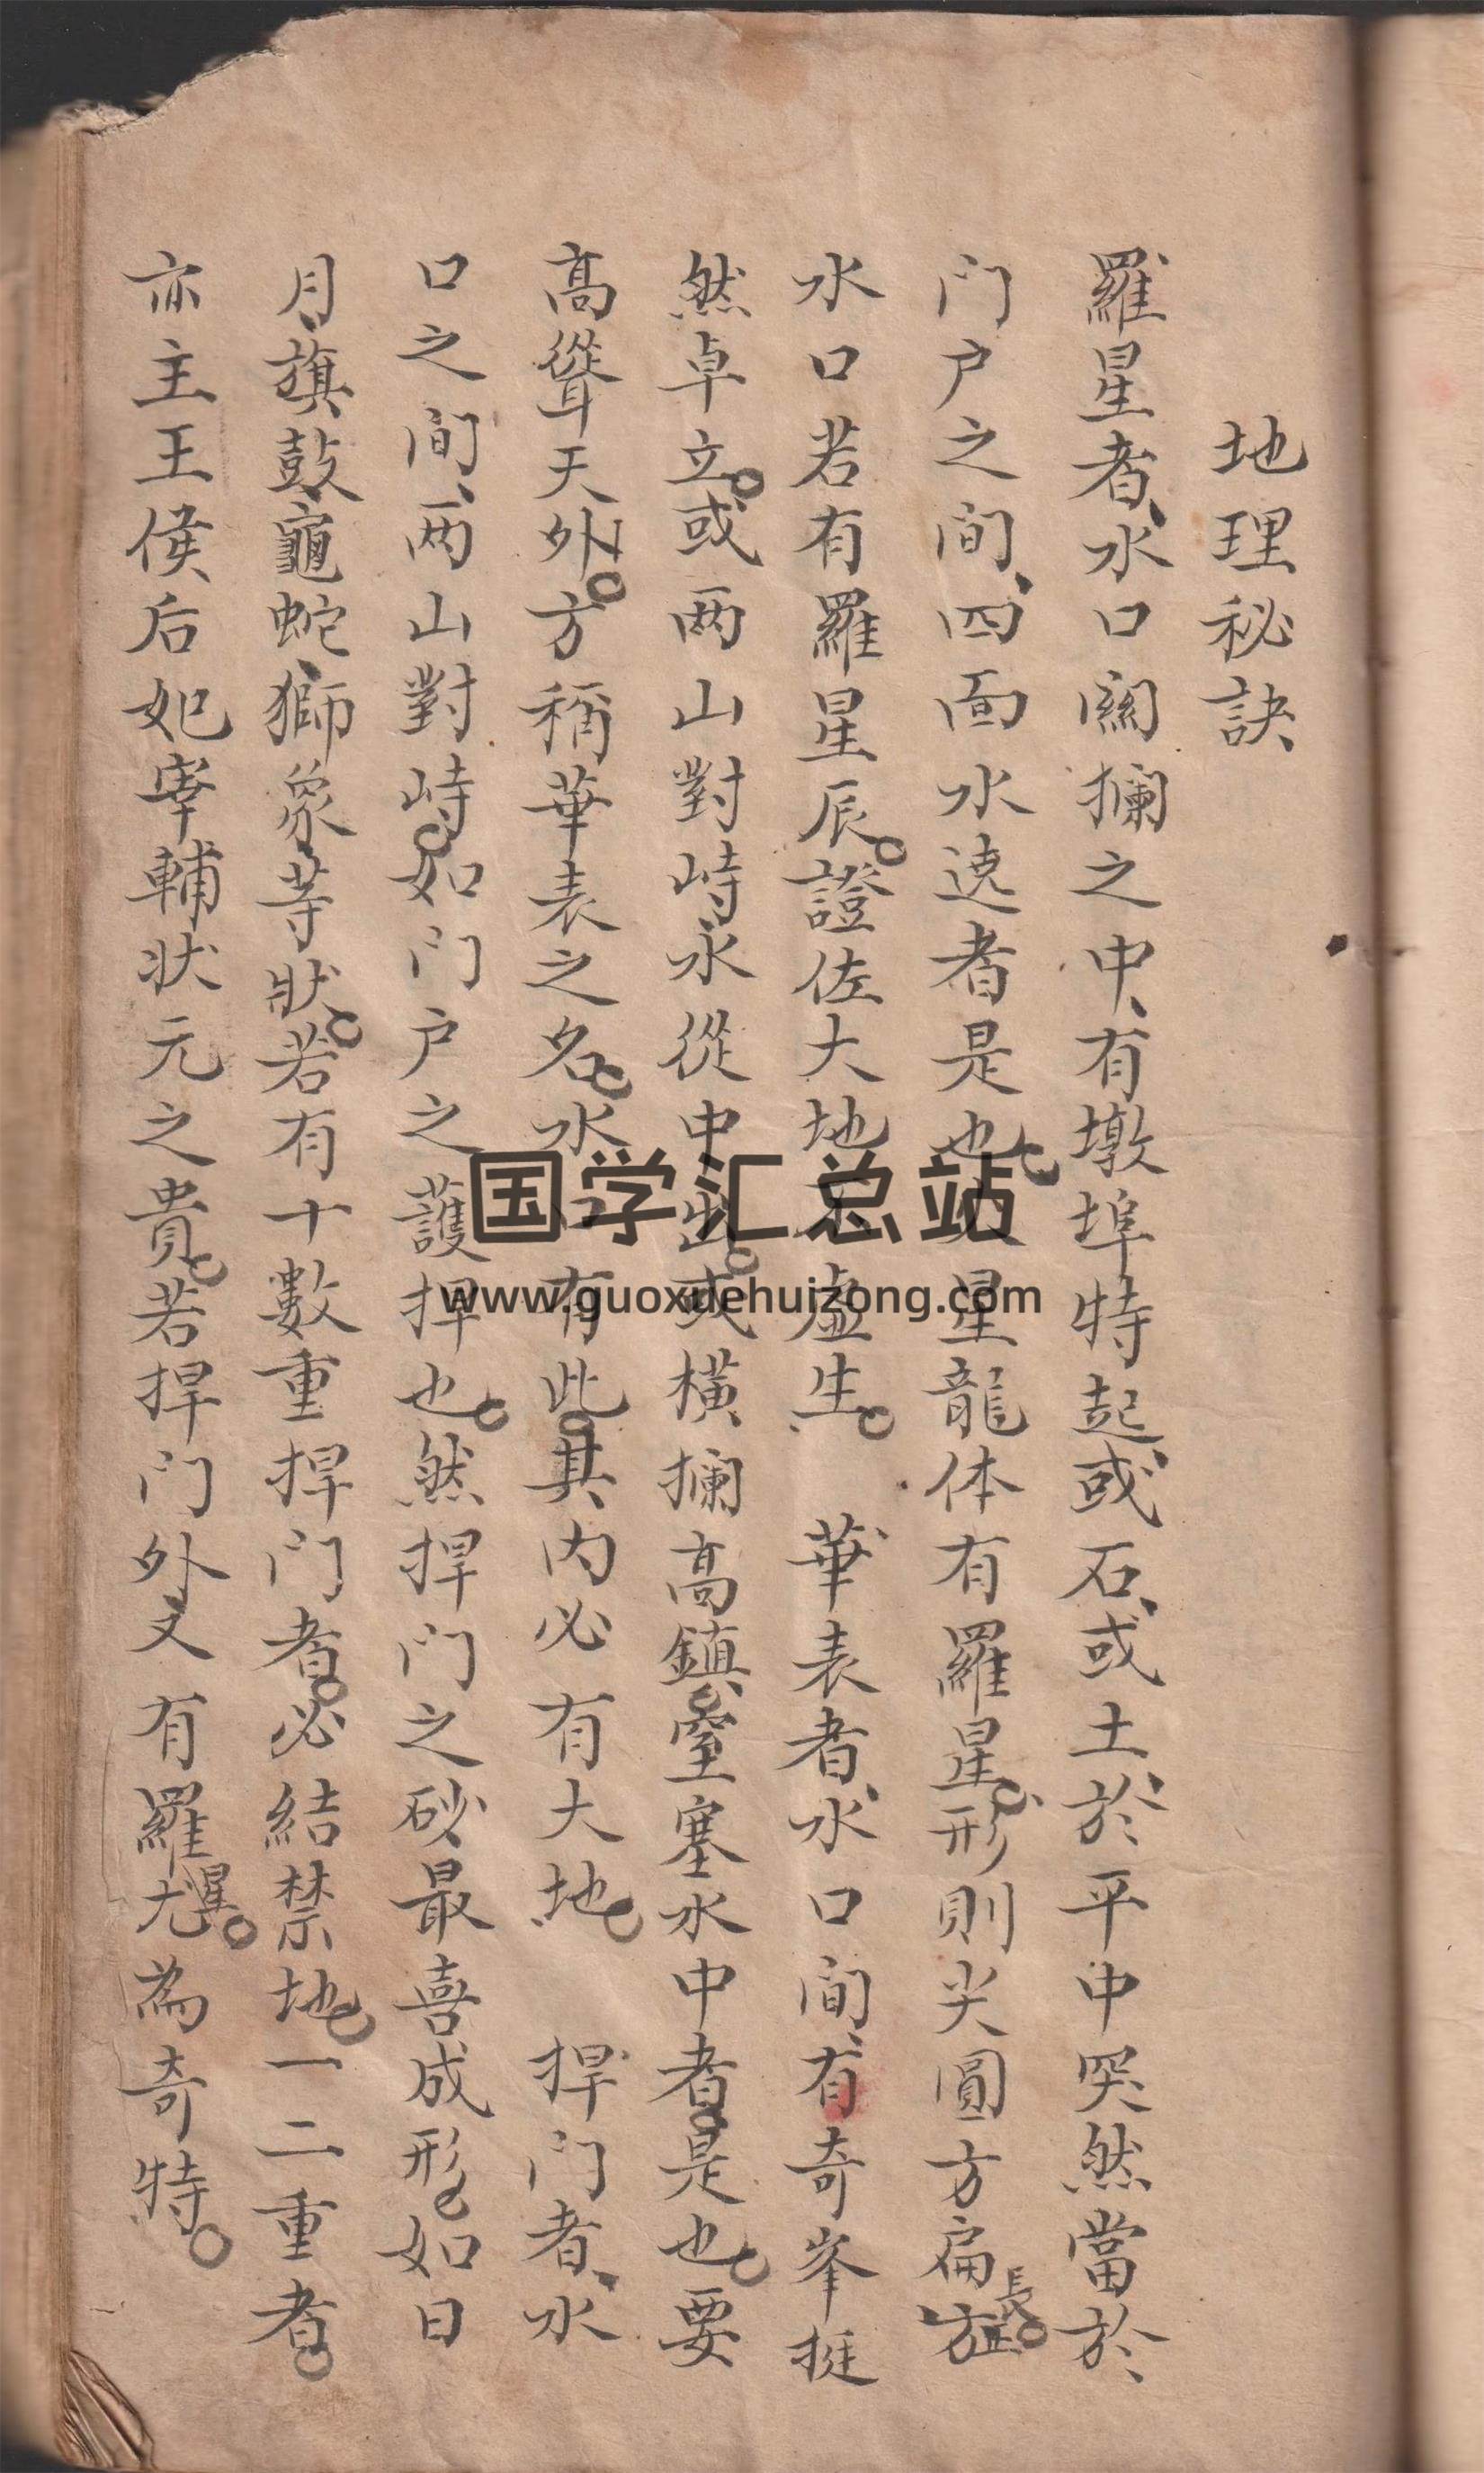 地理秘訣
羅星者、水口関攔之中、有墩埠特起、或石、或土、於平中突然當於
门户之间、四面水遶者是也 星龍体有羅星形則尖圓方扁長
水口若有羅星辰證佐大地 虚生 華表者、水口间有奇峯挺
然卓立或两山對峙水從中出或横攔高鎮 塞水中者是也要
高聳天外方稱華表之名水 有此其内必有大地 捍门者、水
口之间、两山對峙如门户之護捍也然捍门之砂最喜成形如日
月、旗鼓、龜蛇、獅象等狀若有十數重捍门者必結禁地一二重者
亦主王侯后妃宰輔状元之貴若捍门外又有羅星尤為奇特
国学汇总站
www.guoxuehuizong.com